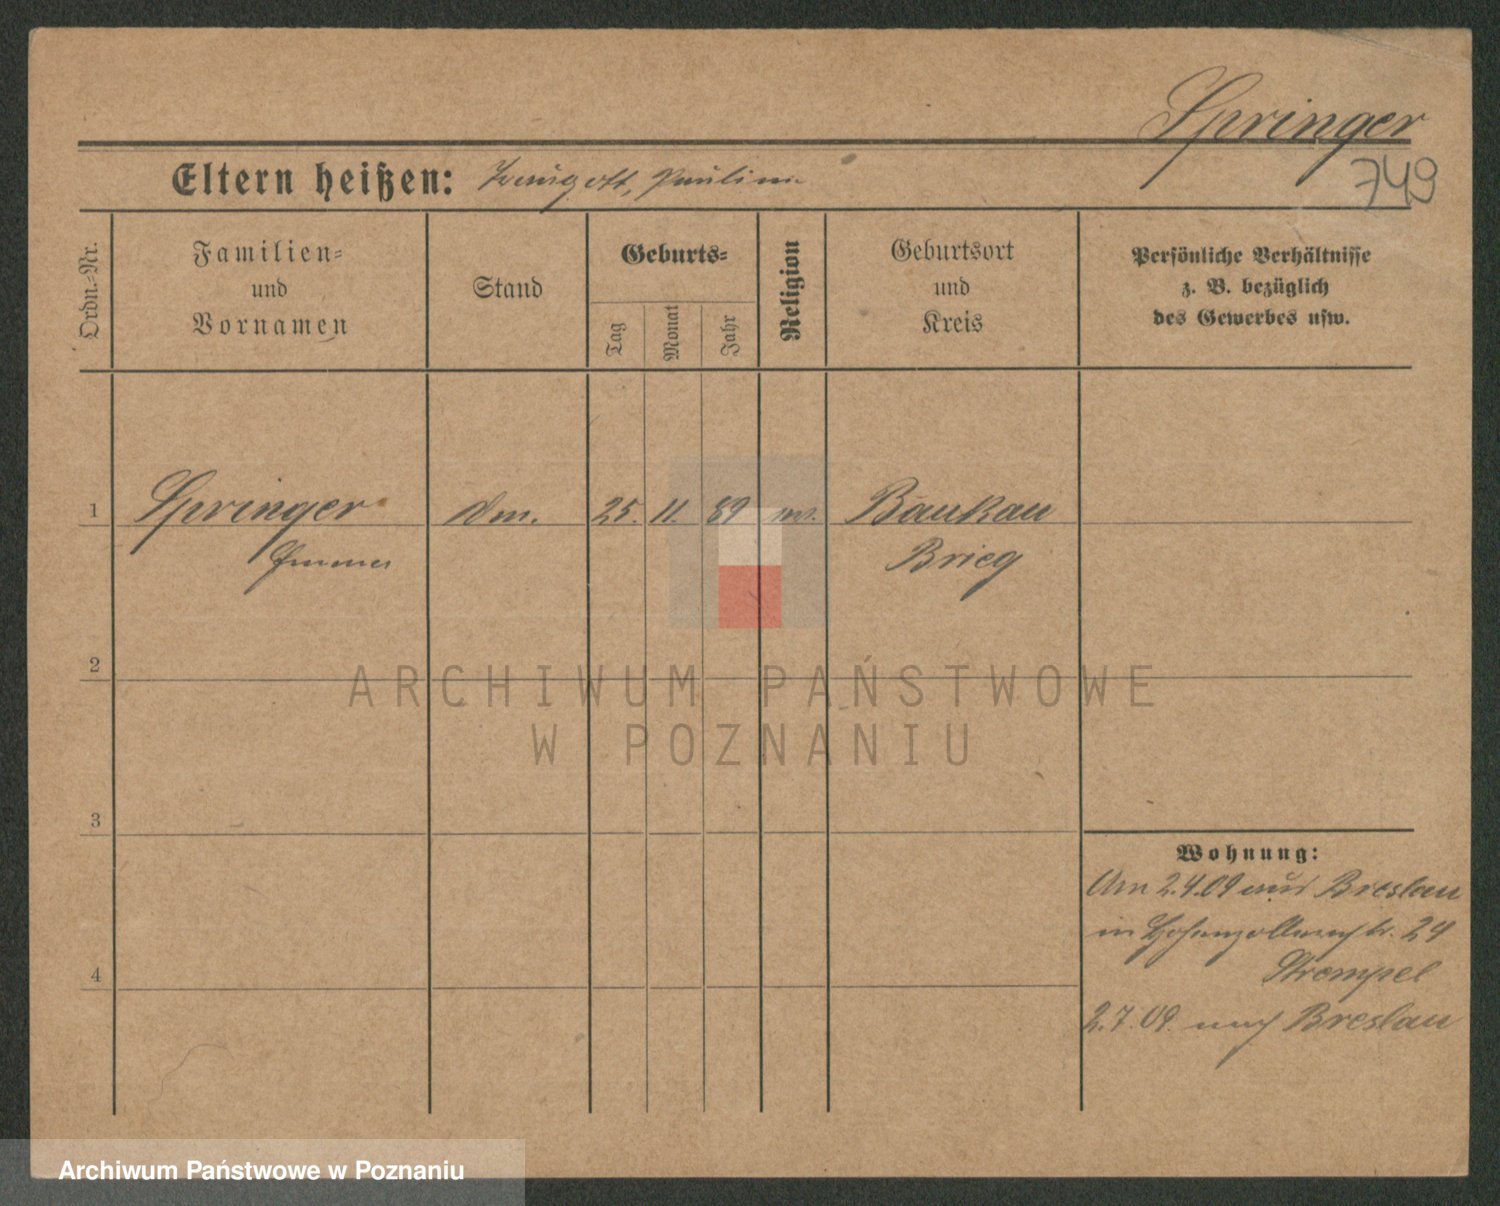 Springer
749
Eltern heißen: Traugott, Pauline
Ordn.-Nr.
Familien-
und
Vornamen
Stand
Geburts-
Tag
Monat
Jahr
Religion
Geburtsort
und
Kreis
Persönliche Verhältnisse
z. B. bezüglich
des Gewerbes usw.
1 Springer 25. 11. 89 Baukau
Emma Brieg
2
3
4
ARCHIWUM PAŃSTWOWE
W POZNANIU
Wohnung:
Am 2.4.09 aus Breslau
in Hohenzollernstr. 24
Strempel
2.7.09. nach Breslau
Archiwum Państwowe w Poznaniu